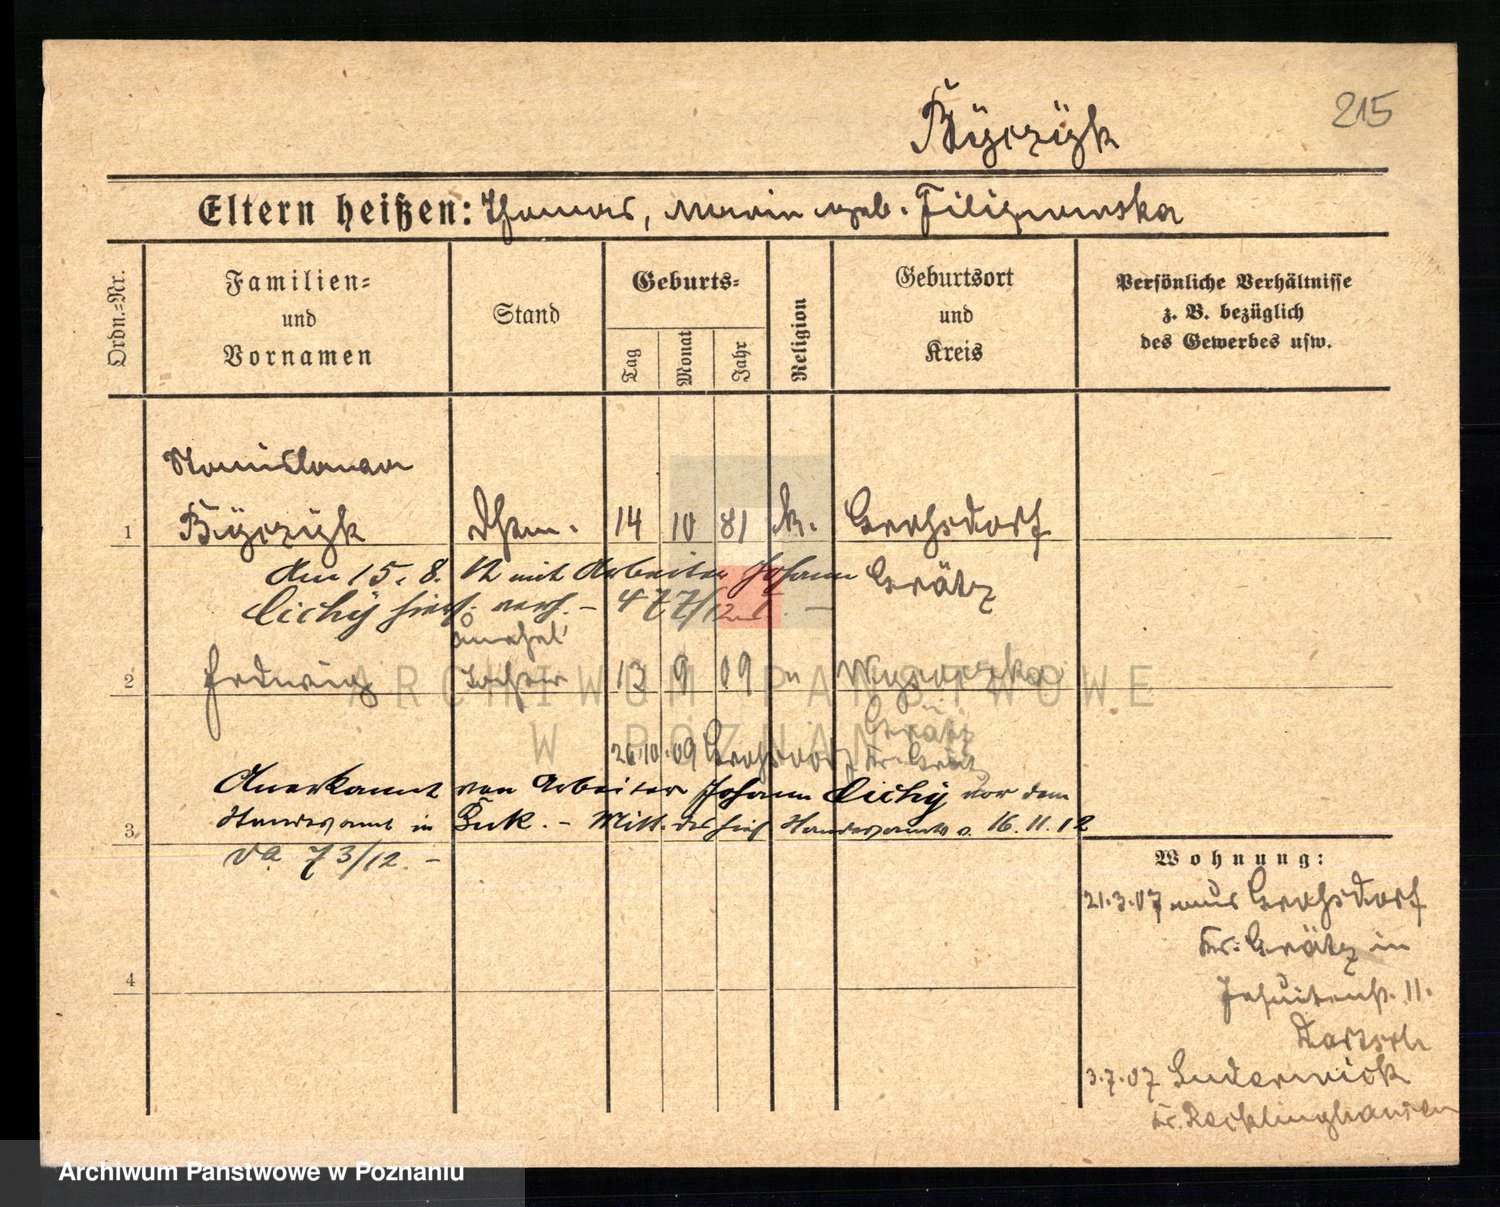 215
Byczyk
Eltern heißen: Thomas, Maria geb. Filipowska
Ordn.=Nr.
Familien=
und
Vornamen
Stand
Geburts=
Tag
Monat
Jahr
Religion
Geburtsort
und
Kreis
Persönliche Verhältnisse
z. B. bezüglich
des Gewerbes usw.
Stanislawa
1 Byczyk 14 10 81 k. Grabsdorf
Am 15. 8. 12 mit Arbeiter Johann Grätz
Cichy hier verh. – 477/12
unehel.
2 Hedwig Tochter 13 9 09
Grätz
26.10.09 Kr. Grätz
Anerkannt von Arbeiter Johann Cichy vor dem
3 Standesamt in Buk. – Mitt. des hies. Standesamts v. 16.11.12
73/12. –
4
Wohnung:
21.3.07 aus Grabsdorf
Kr. Grätz in
Jesuitenstr. 11.
3.7.07 Suderwick
Kr. Recklinghausen
ARCHIWUM PAŃSTWOWE
W POZNANIU
Archiwum Państwowe w Poznaniu